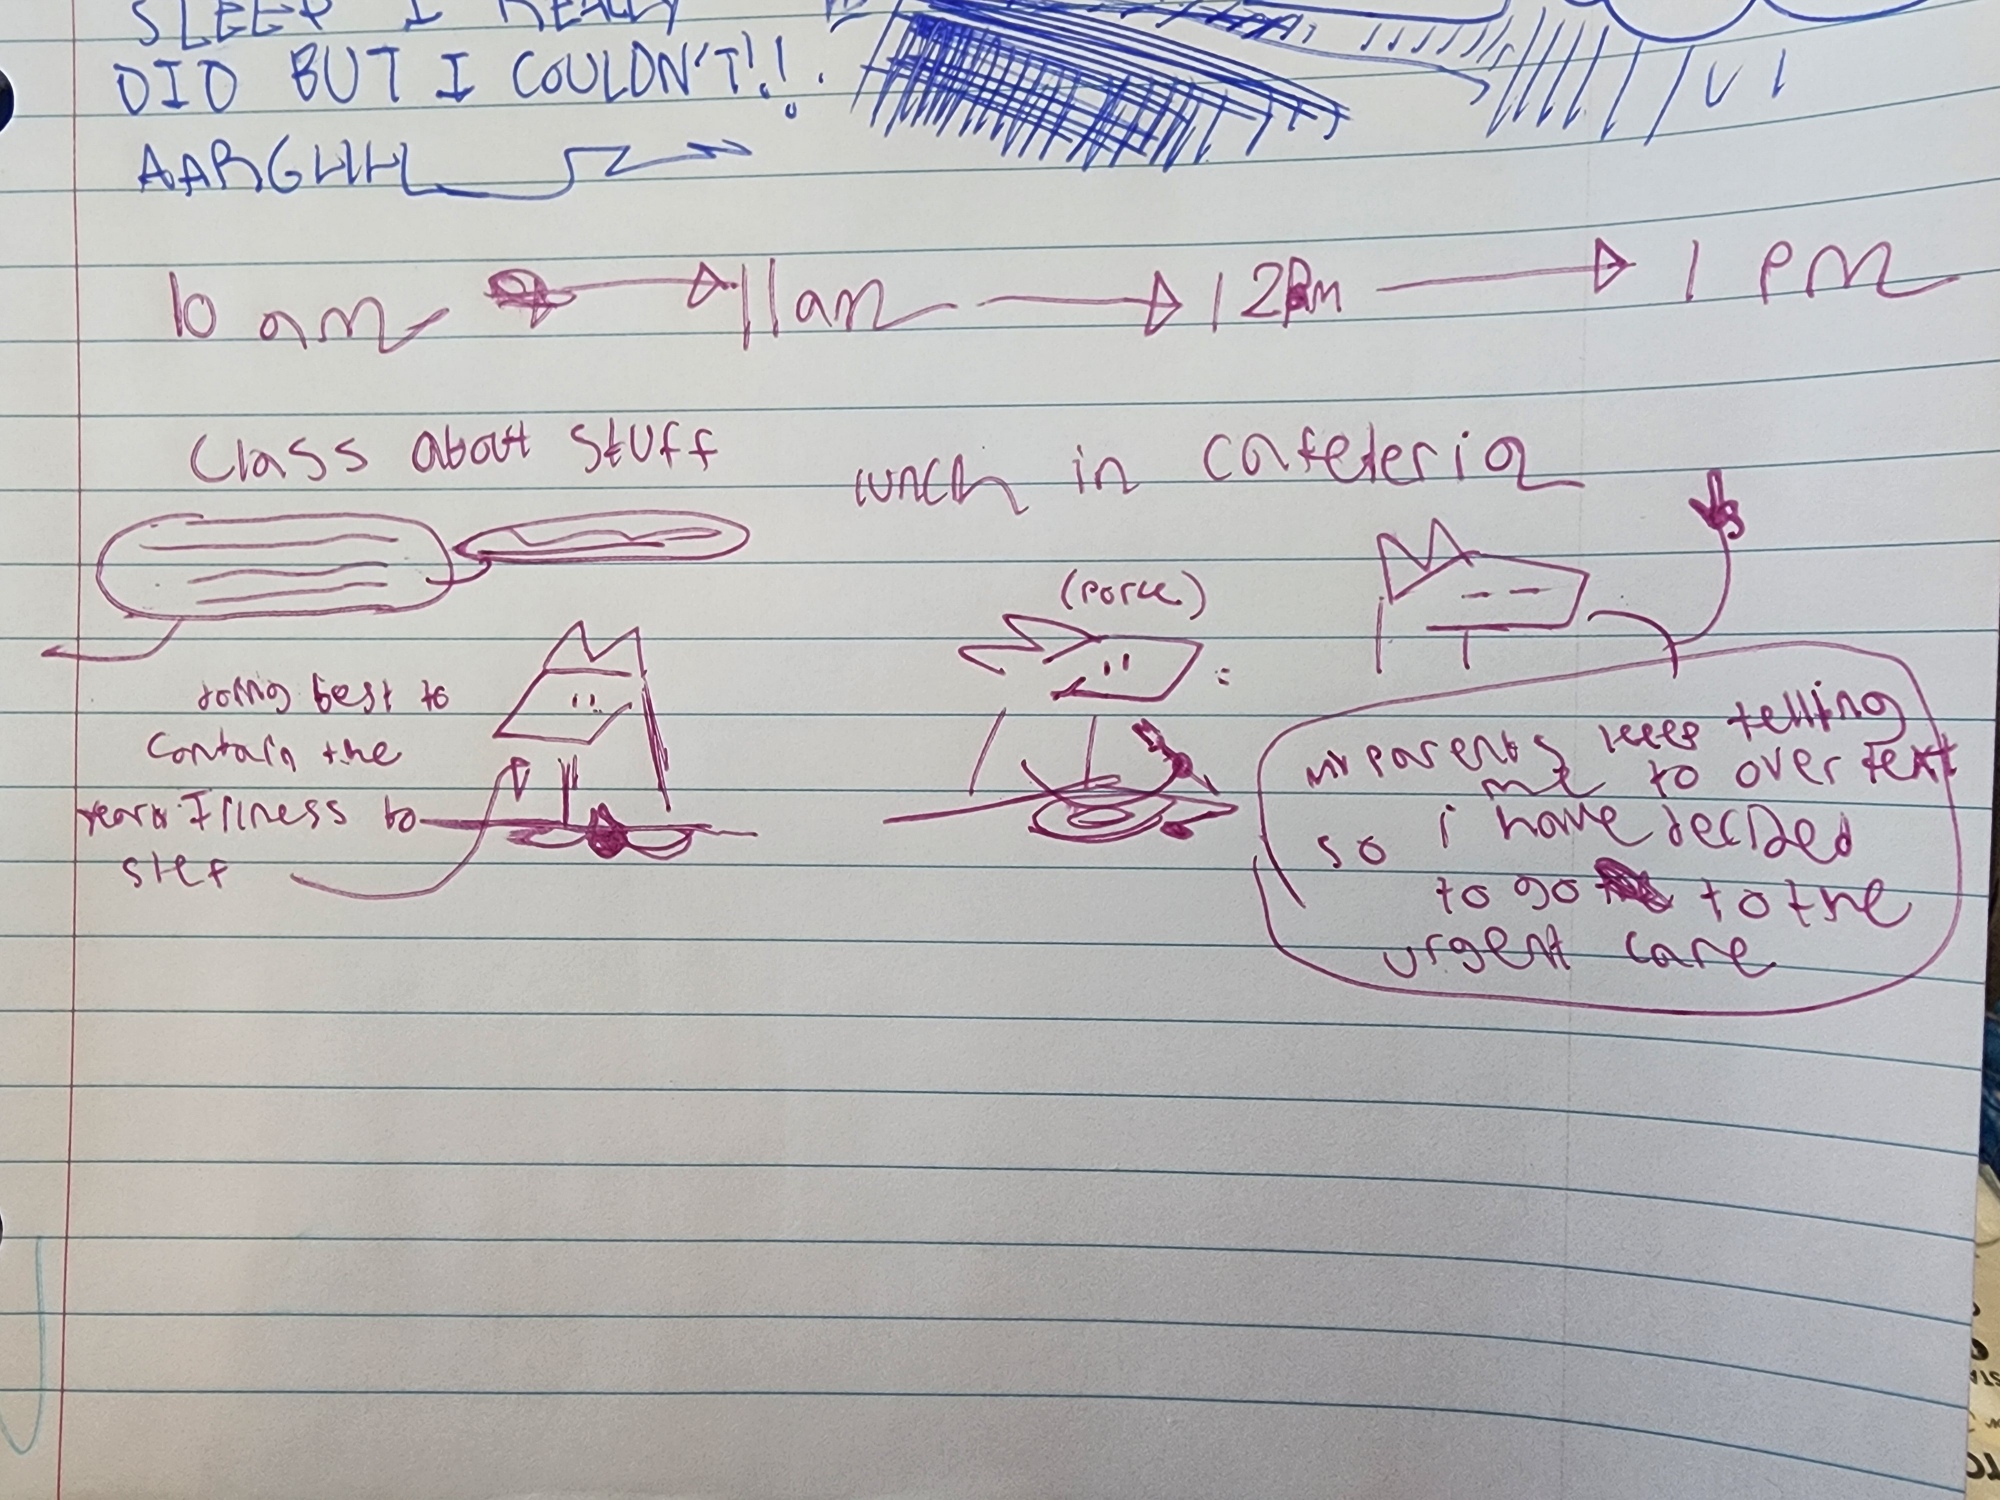 SLEEP I REALLY
DID BUT I COULDN'T!!.
AARGHH
10 am 11am 12Pm 1 PM
Class about stuff
lunch in cafeteria
(porke)
doing best to
contain the
Illness to
step
my parents keep telling
me to over text
so i have decided
to go to the
urgent care